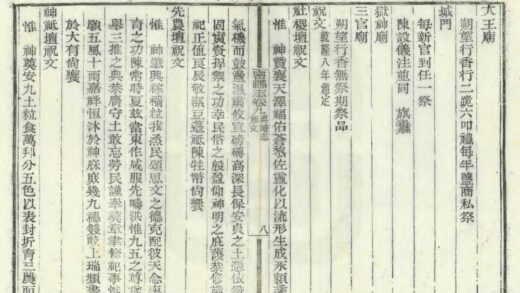 大王廟
朔望行香行二跪六叩禮每年鹽商私祭
城門
每新官到任一祭
陳設儀注並同 旗纛
獄神廟
三官廟
朔望行香無祭期祭品
祝文 乾隆八年頒定
社稷壇祝文
惟 神贊襄天澤福佑蒼黎佐靈化以流形生成永賴
卷九
祝文
八
氣機而鼓盪溫肅攸宜磅礴高深長保安貞之吉憑依
固實資捍禦之功幸民俗之殷盈仰神明之庇護恭修
祀正值良辰敬潔豆籩祗陳牲幣尚饗
先農壇祝文
惟 神肇興稼穡粒我烝民頌思文之德克配彼天念
育之功陳常時夏茲當東作咸服先疇洪惟九五之尊
舉三推之典恭膺守土敢忘勞民謹奉彝章聿修祀事惟
願五風十雨嘉祥恒沐於神庥庶幾九穗雙岐上瑞頻書
於大有尚饗
神祇壇祝文
惟 神奠安九土粒食萬邦分五色以表封圻育三農而